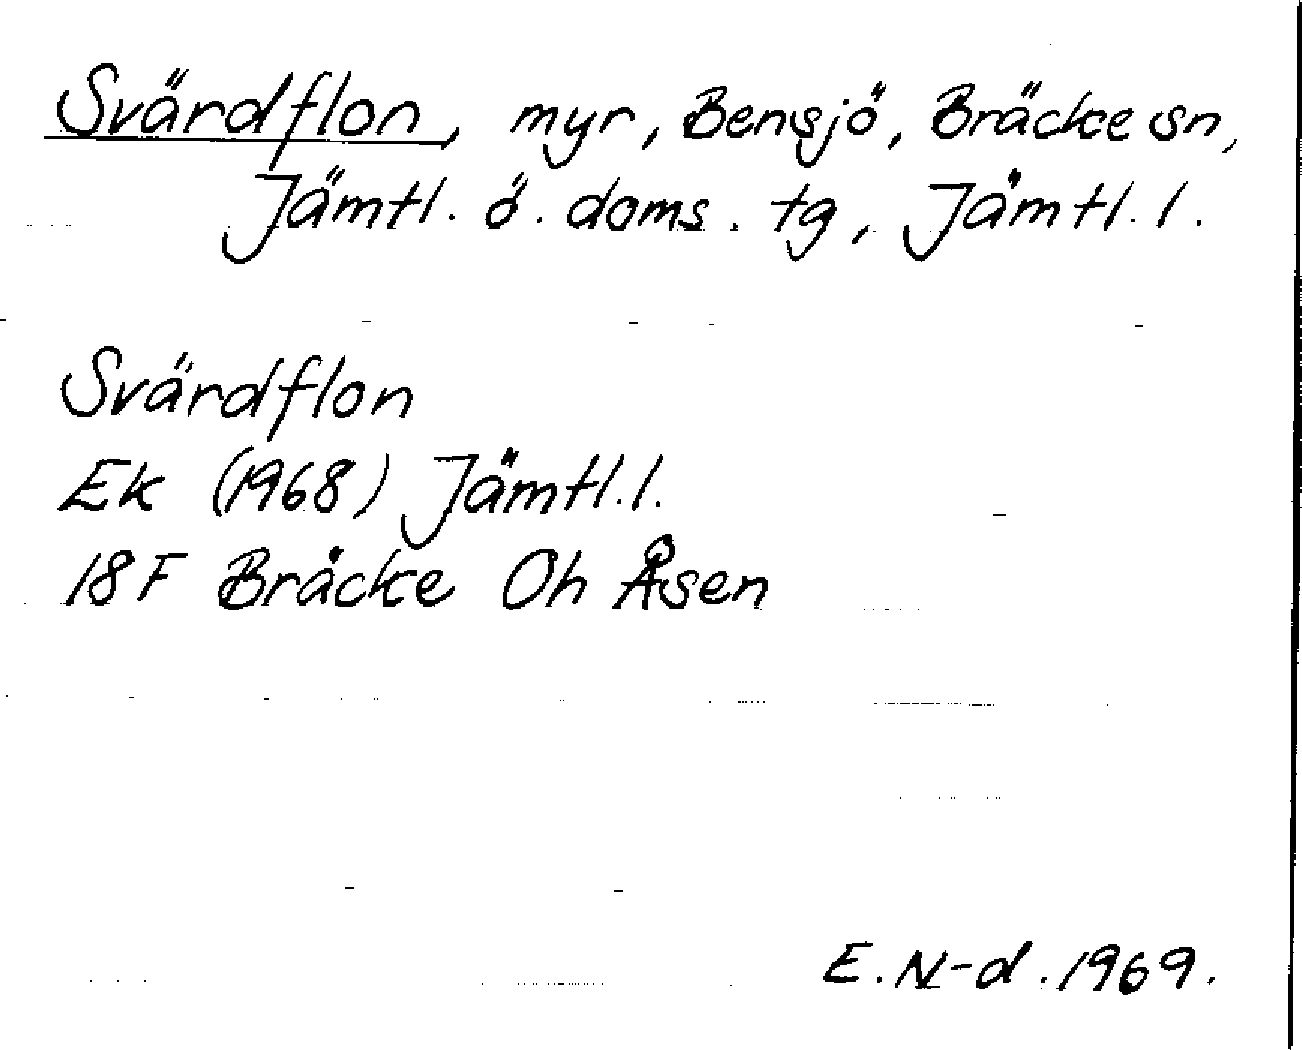 Svärdflon, myr, Bensjö, Bräcke sn,
Jämtl. ö. doms. tg, Jämtl. l.
Svärdflon
Ek (1968) Jämtl. l.
18F Bräcke Oh Åsen
E. N-d. 1969.